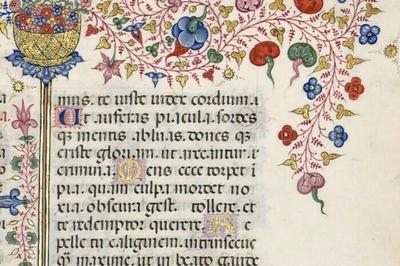 mus. te iuste iudex cordium. a
Ut auferas piacula. sordes
q̃ mentis abluas. dones q̃
criste gloriam. ut arceantur. c
crimina. Mens ecce torpet i
pia. quam culpa mordet no
xia. obscura gestit. tollere. et
te redemptor querere. R
pelle tu caliginem. intrinsecus
q̃ maxime. ut in beato gaude